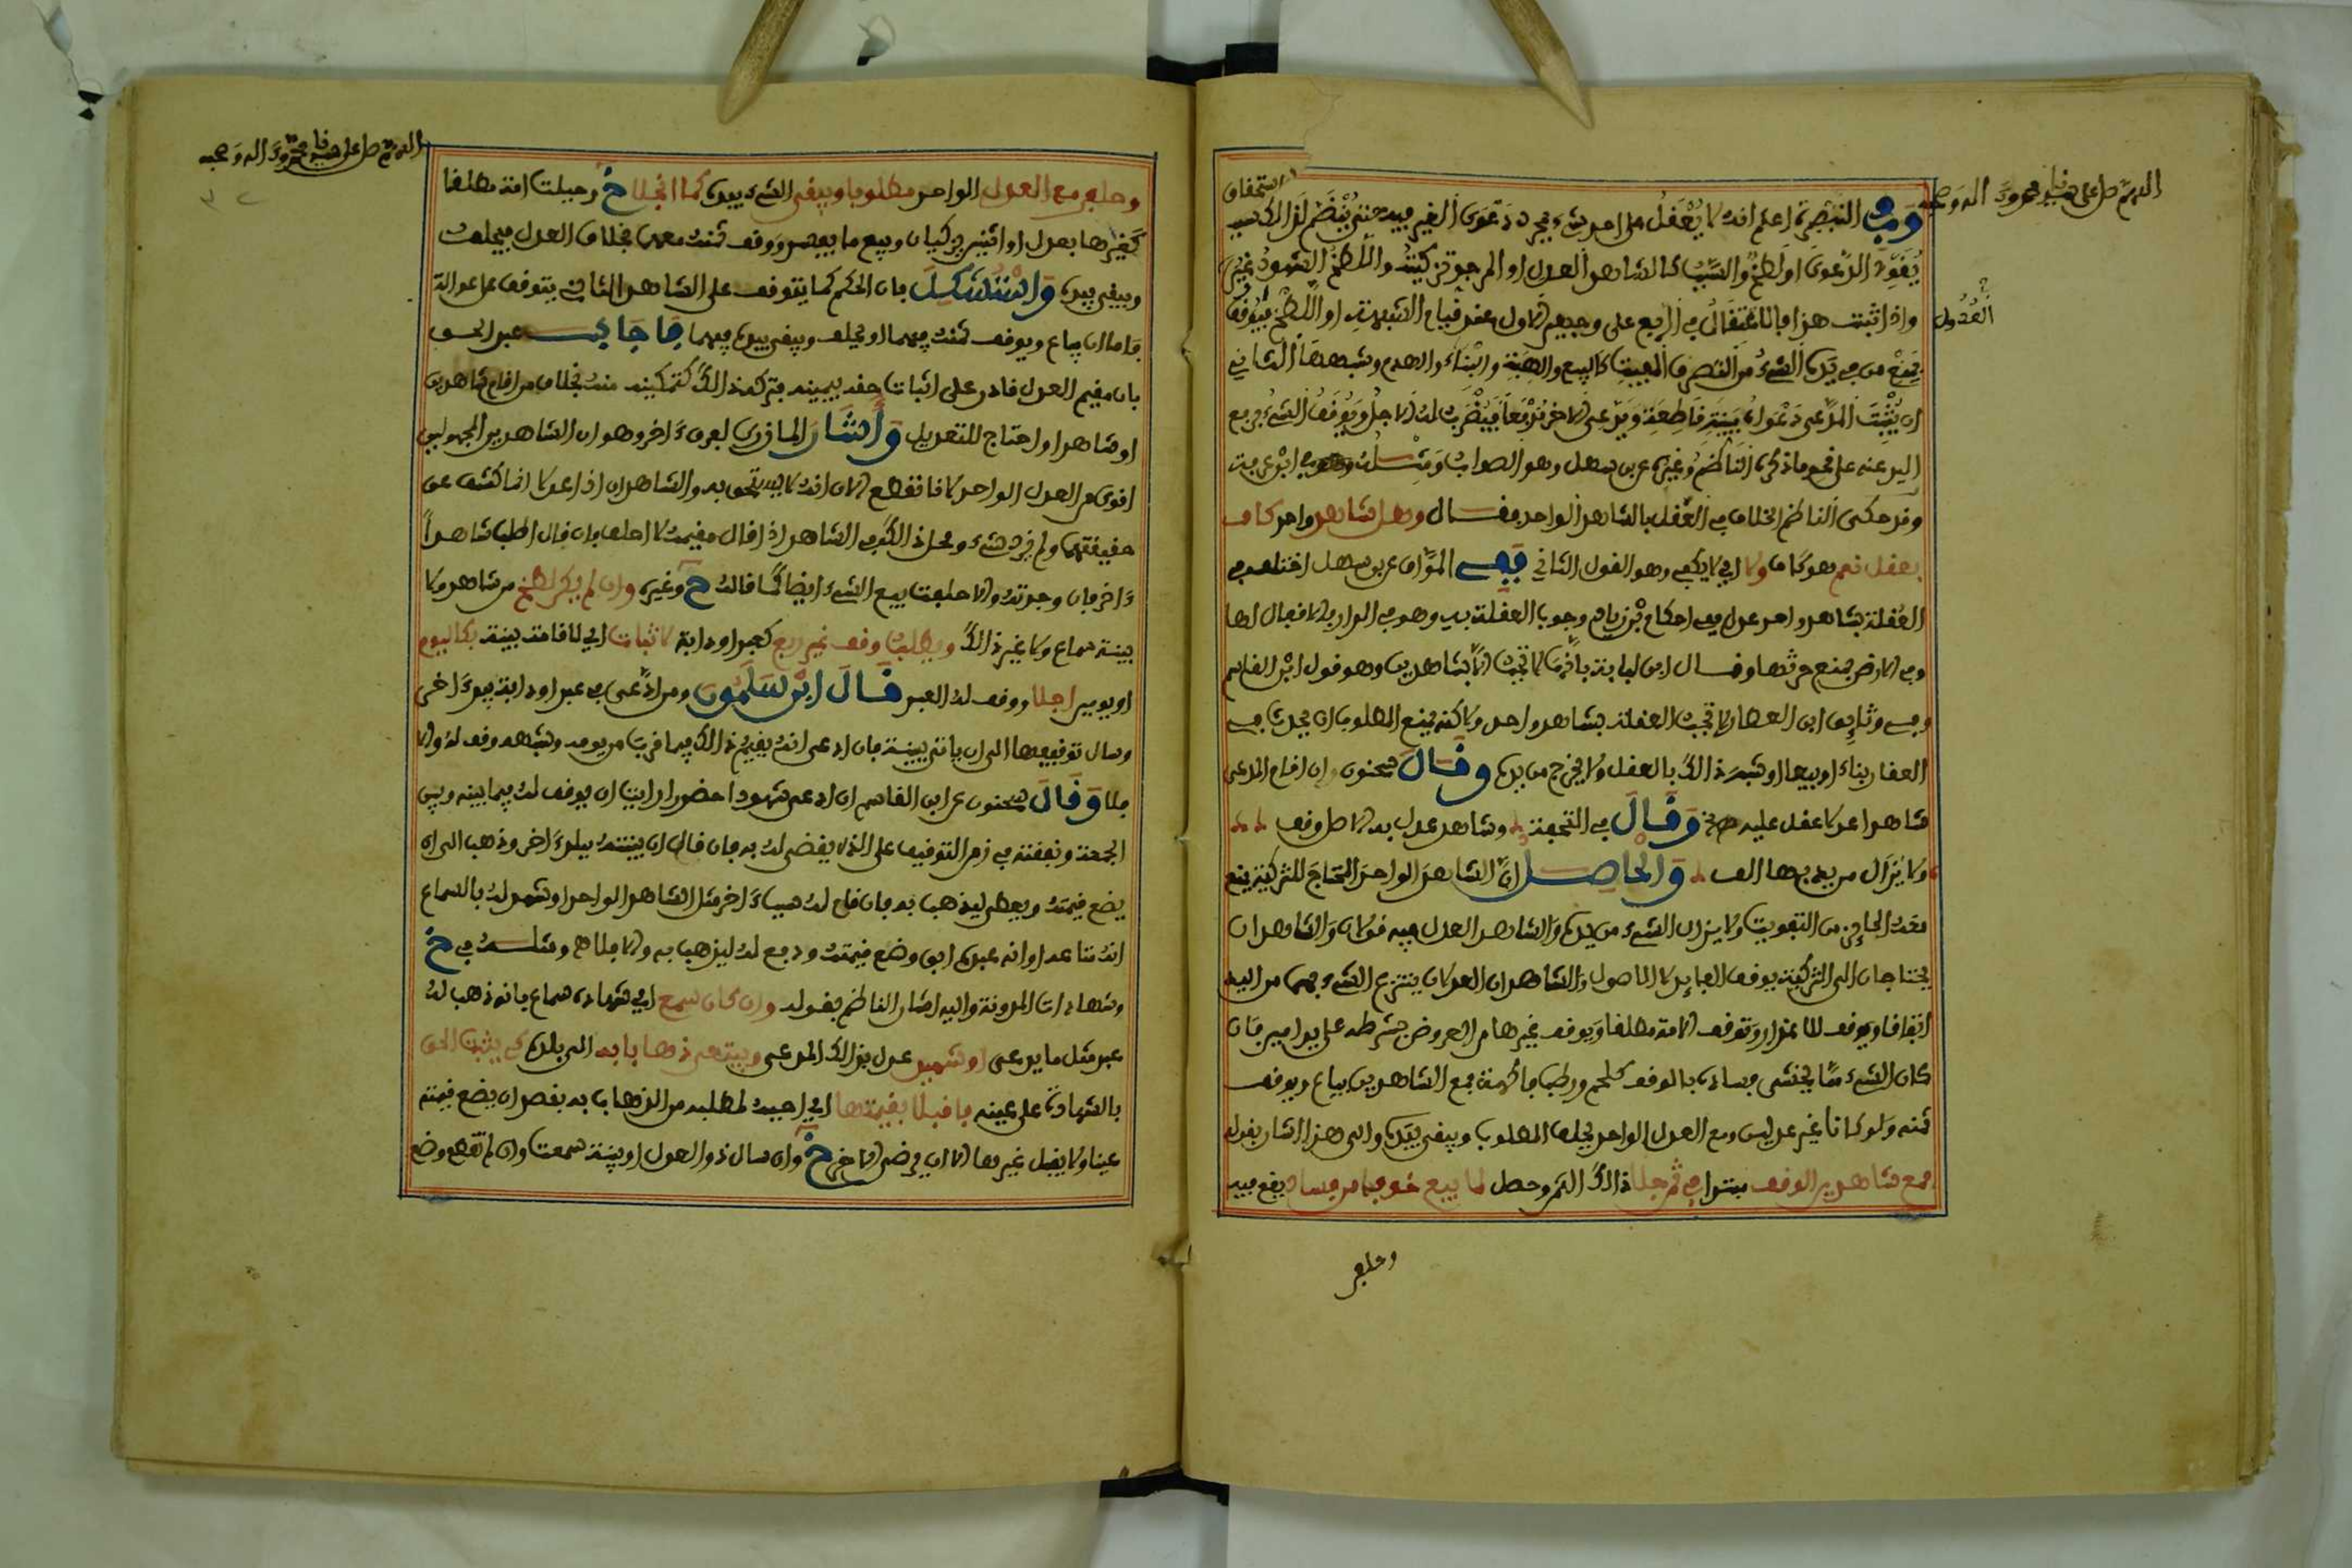 اللهم صل على سيدنا محمد وآله وصحبه
وفي التبصرة اعلم انه لا يعقل على احد شيء بمجرد دعوى الغير فيه حتى ينضم لذالك سبب
يقوي الدعوى او لطخ والسبب كالشاهد العدل او المرجو تزكيته واللطخ الشهود غير
العدول
واذا ثبت هذا فالاعتقال في الربع على وجهين الاول عند قيام الشبهة او اللطخ فيوقف
يمنع من في يده الشيء من التصرف المفيت كالبيع والهبة والبناء والهدم وشبهها الثاني
ان يثبت المدعي دعواه ببينة قاطعة ويدعي الاخر مدفعا فيضرب له الاجل ويوقف الشيء برفع
اليد عنه على نحو ما ذكره الناظم وغيره عن سهل وهو الصواب ومثله ابن عرفة
وقد حكى الناظم الخلاف في العقل بالشاهد الواحد فقال وهل شاهد واحد كاف
بعقل نعم هو كاف ولا اي لا يكفي وهو القول الثاني ففي المواق عن بن سهل اختلف في
العقلة بشاهد واحد عدل ففي احكام بن زياد وجوب العقلة به وهو في الدار بالاقفال لها
وفي الارض بمنع حرثها وقال ابن لبابة بانها لا تجب الا بشاهدين وهو قول ابن القاسم
وفي وثايق ابن العطار لا تجب العقلة بشاهد واحد ولاكنه يمنع المطلوب ان يحدث في
العقار بناء او بيعا او شبه ذالك بالعقل ولا يخرج من يده وقال سحنون ان اقام المدعي
شاهدا عدلا عقل عليه وقال في التحفة وشاهد عدل به الاصل وقف
ولا يزال من يد بها الف والحاصل ان الشاهد الواحد المحتاج للتزكية يمنع
معه الحايز من التفويت ولا يزال الشيء من يده والشاهد العدل فيه قولان والشاهدان
يحتاجان الى التزكية يوقف العاير لا الاصول والشاهدان العدلان ينتزع الشيء بهما من اليد
اتفاقا ويوقف للاعذار وتوقف الامة مطلقا ويوقف غيرها من العروض بشرطه على يد امين فان
كان الشيء مما يخشى فساده بالوقف كلحم ورطب فاكهة فمع الشاهدين يباع ويوقف
ثمنه ولو كانا غير عدلين ومع العدل الواحد يحلف المطلوب ويبقى بيده والى هذا اشار بقوله
فمع شاهدين الوقف مبتدا في ثمن جلا ذالك الثمن وحصل لما بيع خوفا من فساد يقع فيه
وحلف
اللهم صل على سيدنا محمد وآله وصحبه
وحلف مع العدل الواحد مطلوبا ويبقى الشيء بيده كما انجلا خ وحيلت امة مطلقا
كغيرها بعدل او اثنين يزكيان وبيع ما يفسد ووقف ثمنه معهما بخلاف العدل فيحلف
ويبقى بيده واستشكل بان الحكم كما يتوقف على الشاهد الثاني يتوقف على عدالة
فاما ان يباع ويوقف ثمنه فيهما او يحلف ويبقى بيده فيهما فاجاب عبد الحق
بان مقيم العدل قادر على اثبات حقه بيمينه فتركه ذالك كتمكينه منه بخلاف من اقام شاهدين
او شاهدا واحتاج للتعديل واشار المازري لفرق اخر وهو ان الشاهدين المجهولين
اقوى من العدل الواحد لانا نقطع الان انه لا يستحق به والشاهدان اذا عدلا انما كشف عن
حقيقتهما ولم يزد شيء ومحل ذالك في الشاهد اذا قال مقيمه لا احلف وان قال اطلب شاهدا
اخر فان وجدته والا حلفت بيع الشيء ايضا كما قاله خ وغيره وان لم يكن لطخ من شاهد ولا
بينة سماع ولا غير ذالك ويطلب وقف غير ربع كعبد او دابة لاثبات اي لاقامة بينة بكاليوم
او يومين اجلا ووقف له العبد قال ابن سلمون ومن ادعى في عبد او دابة بيد اخر
وسال توقيفها الى ان ياتي ببينة فان ادعى انه يقيم ذالك فيما قرب من يومه وشبهه وقف له والا
فلا وقال سحنون عن ابن القاسم ان ادعى شهودا حضورا رايت ان يوقف له فيما بينه وبين
الجمعة ونفقته في زمن التوقيف على الذي يقضى له به فان قال ان بينته ببلد اخر وذهب الى ان
يضع قيمته ويعطى ليذهب به فان قام له سبب اخر مثل الشاهد الواحد او شهد له بالسماع
انه متاعه او انه عبده ابق وضع قيمته ودفع له ليذهب به والا فلا ه ومثله في خ
وشهادات المدونة واليه اشار الناظم بقوله وان كان سمع اي شهادة سماع بانه ذهب له
عبد مثل ما يدعى او شهيد عدل بذالك المدعى ويبتغي ذهابا به الى بلد كي يثبت الحق
بالشهادة على عينه فاقبلا بقيمتها اي اجيب لمطلبه من الذهاب به بفضل ان يضع قيمته
عينا ولا يقبل غيرها الا ان يرضى الاخر خ وان سال ذو العدل او بينة سمعت وان لم تقطع وضع